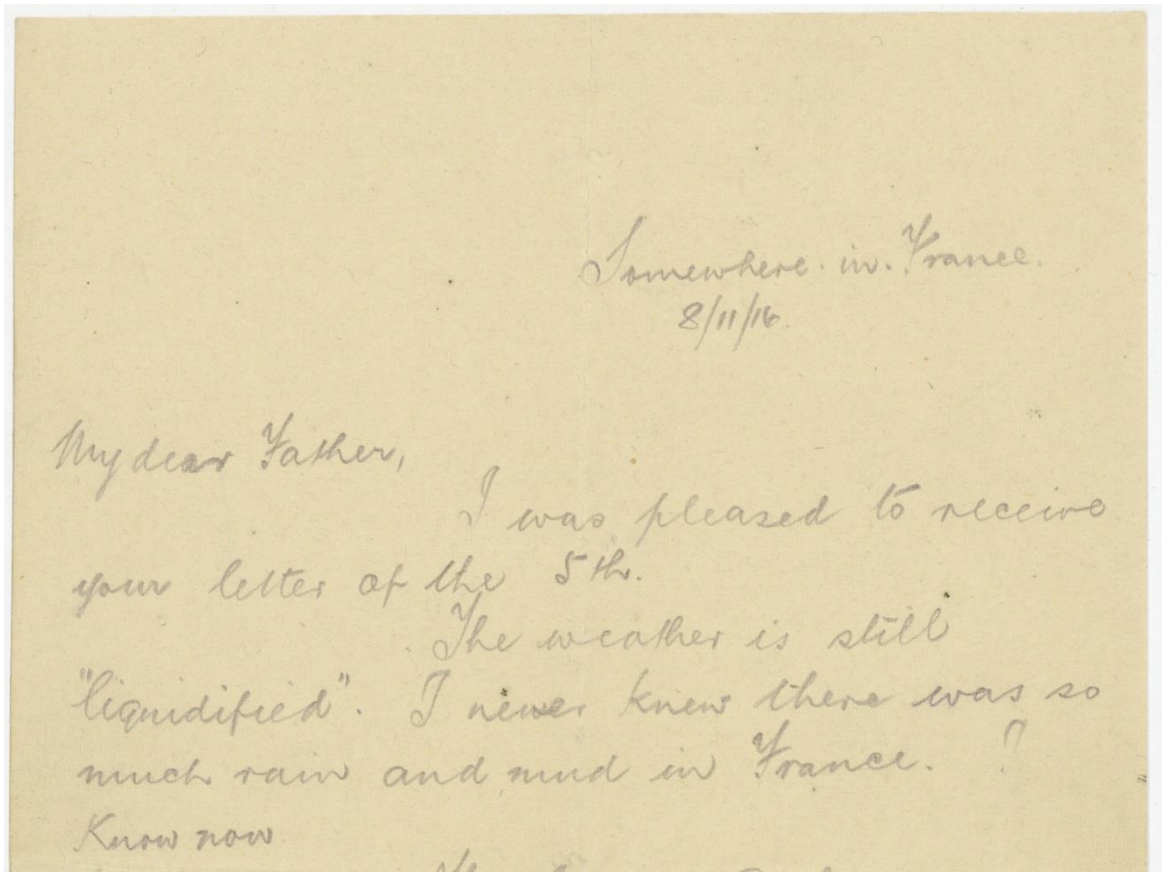 Somewhere in France.
8/11/16.
My dear Father,
I was pleased to receive
your letter of the 5th.
The weather is still
"liquidified". I never knew there was so
much rain and mud in France. I
Know now